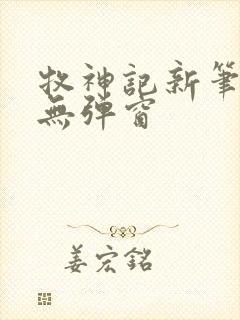 牧神記新筆
無彈窗
姜宏銘